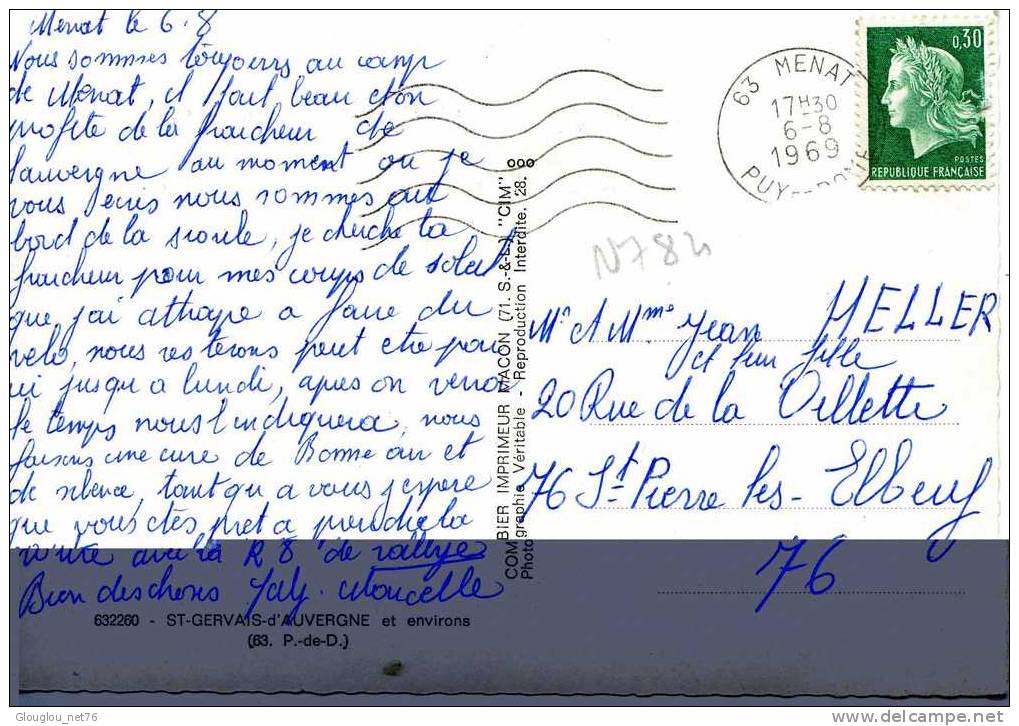 Menat le 6.8
Nous sommes toujours au camp
de Menat, il fait beau et on
profite de la fraicheur de
l'auvergne au moment ou je
vous ecris nous sommes au
bord de la sioule, je cherche la
fraicheur pour mes coups de soleil
que j'ai attrape a faire du
velo, nous resterons peut etre par
ici jusqu a lundi, apres on verra
le temps nous l indiquera, nous
faisons une cure de Bonne air et
de silence, tant qu a vous j espere
que vous etes pret a prendre la
route avec la R8 de rallye
Bien des choses Marcelle
632260 - ST-GERVAIS-d'AUVERGNE et environs
(63. P.-de-D.)
COMBIER IMPRIMEUR MACON (71. S.-&-L.) "CIM"
Photographie Véritable - Reproduction Interdite. 128.
63 MENAT
17H30
6-8
1969
PUY-DE-DOME
0,30
POSTES
REPUBLIQUE FRANÇAISE
N784
Mr & Mme Jean HELLER
et leur fille
20 Rue de la Villette
76 St-Pierre les-Elbeuf
76
Glouglou_net76
www.delcampe.net